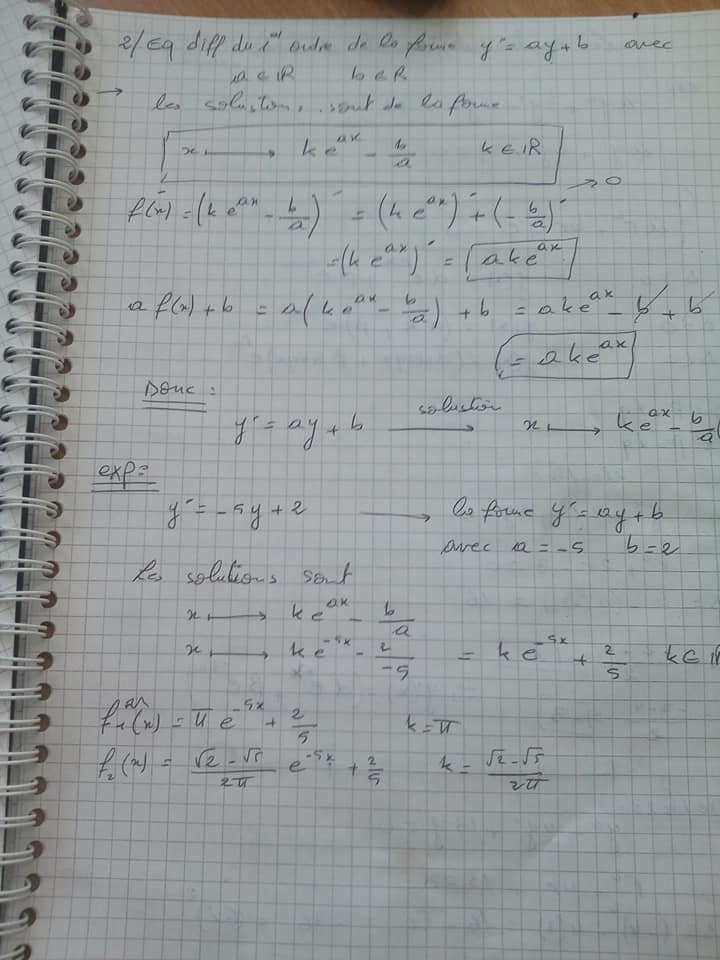 2/ Eq diff du 1er ordre de la forme y' = ay + b avec
a ∈ ℝ b ∈ ℝ
→ les solutions sont de la forme
x ⟼ k e^{ax} - b/a k ∈ ℝ
f'(x) = (k e^{ax} - b/a)' = (k e^{ax})' + (-b/a)' → 0
= (k e^{ax})' = a k e^{ax}
a f(x) + b = a(k e^{ax} - b/a) + b = a k e^{ax} - b + b
= a k e^{ax}
Donc :
y' = ay + b solution → x ⟼ k e^{ax} - b/a
exp :
y' = -5y + 2 → la forme y' = ay + b
avec a = -5 b = 2
Les solutions sont
x ⟼ k e^{ax} - b/a
x ⟼ k e^{-5x} - 2/-5 = k e^{-5x} + 2/5 k ∈ ℝ
f₁(x) = π e^{-5x} + 2/5 k = π
f₂(x) = (√2 - √5)/2π e^{-5x} + 2/5 k = (√2 - √5)/2π